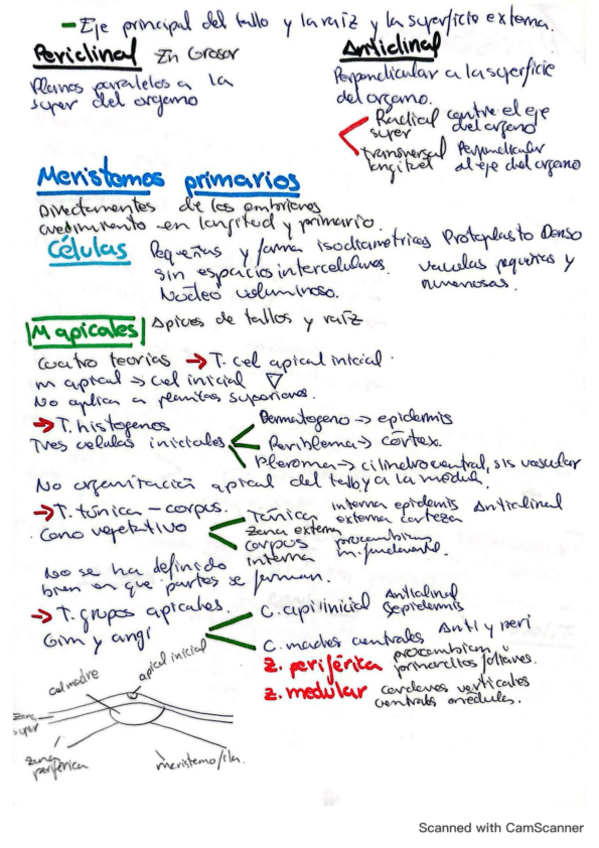 – Eje principal del tallo y la raíz y la superficie externa.
Periclinal En Grosor
Planos paralelos a la
super del organo
Anticlinal
Perpendicular a la superficie
del organo.
Radical contre el eje
super del organo
transversal Perpendicular
longitud al eje del organo
Meristemos primarios
Directamentes de los embriones
crecimiento en longitud y primario.
Células Pequeñas y forma isodiametricas Protoplasto Denso
sin espacios intercelulares. vacuolas pequeñas y
Núcleo voluminoso. numerosas.
M apicales Apices de tallos y raíz
Cuatro teorias → T. cel apical inicial.
m apical → Cel inicial ▽
No aplica a plantas superiores.
→ T. histogenos
Tres celulas iniciales
Dermatogeno → epidermis
Periblema → córtex.
Pleroma → cilindro central, sis vascular
No organización apical del tallo y a la médula.
→ T. túnica – corpus.
Cono vegetativo
Túnica interna epidermis Anticlinal
zona extern externa corteza
Corpus procambium
interna m. fundamental.
No se ha definido
bien en que partes se forman.
→ T. grupos apicales.
Gim y angi
C. api inicial Anticlinal
epidermis
C. madres centrales Anti y peri
Z. periférica procambium
primordios foliares.
Z. medular cordones verticales
centrals médula.
cel madre
apical inicial
zona
super
zona
periférica
Scanned with CamScanner